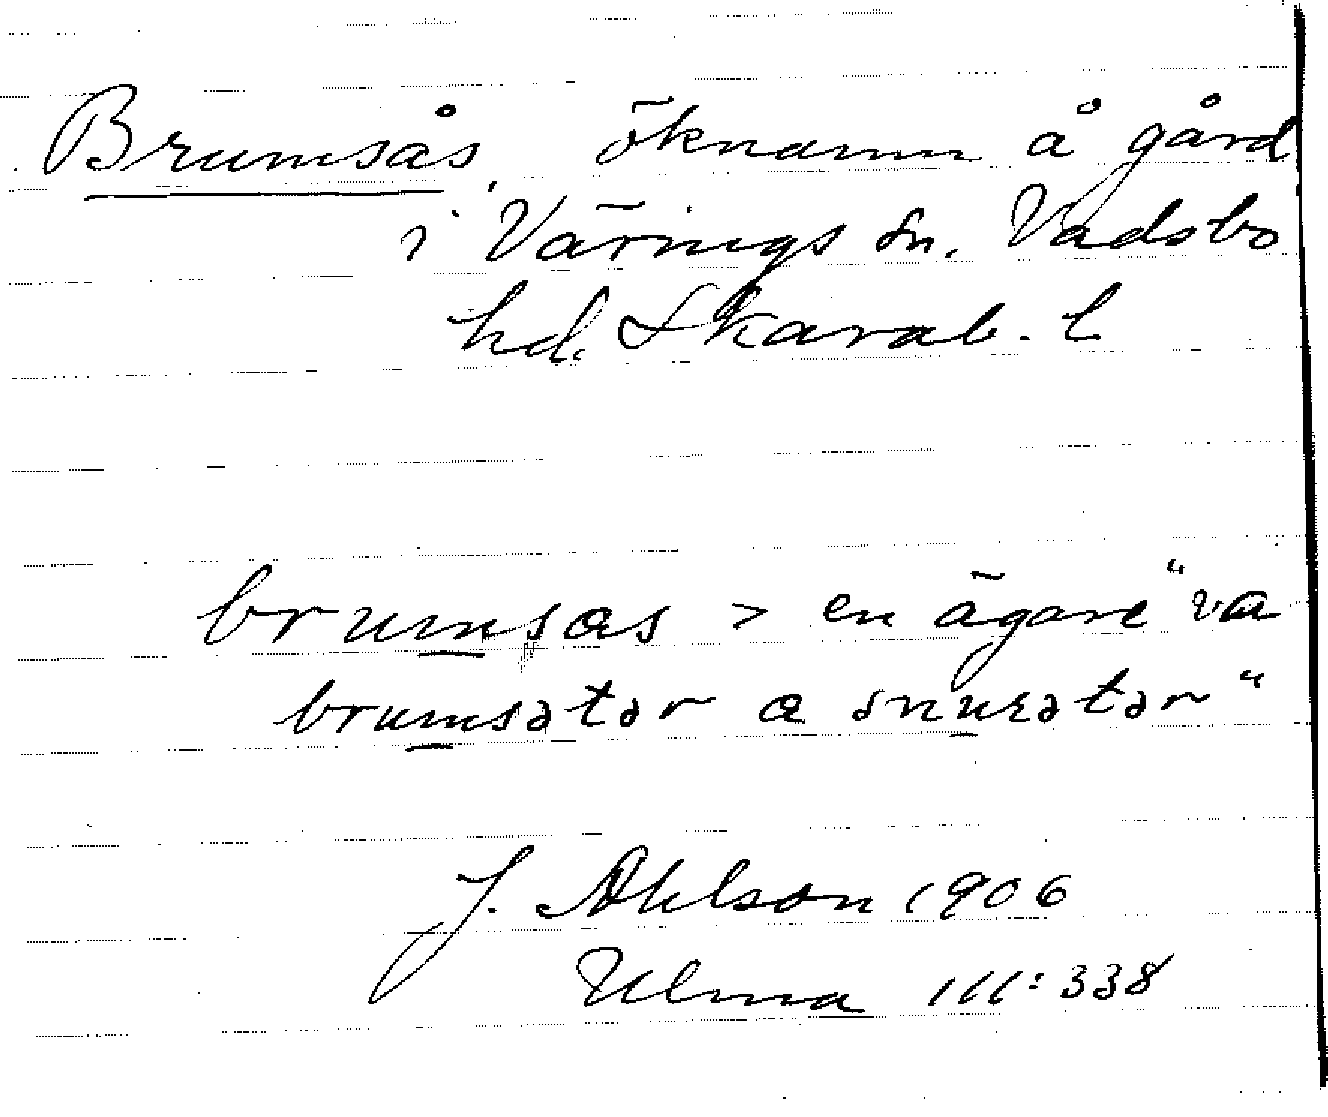 Brumsås, öknamn å gård
i Värings sn. Vadsbo
hd. Skarab. l
brumsas > en ägare "va
brumsətər a snurətər"
J. Ahlson 1906
Ulma 111:338